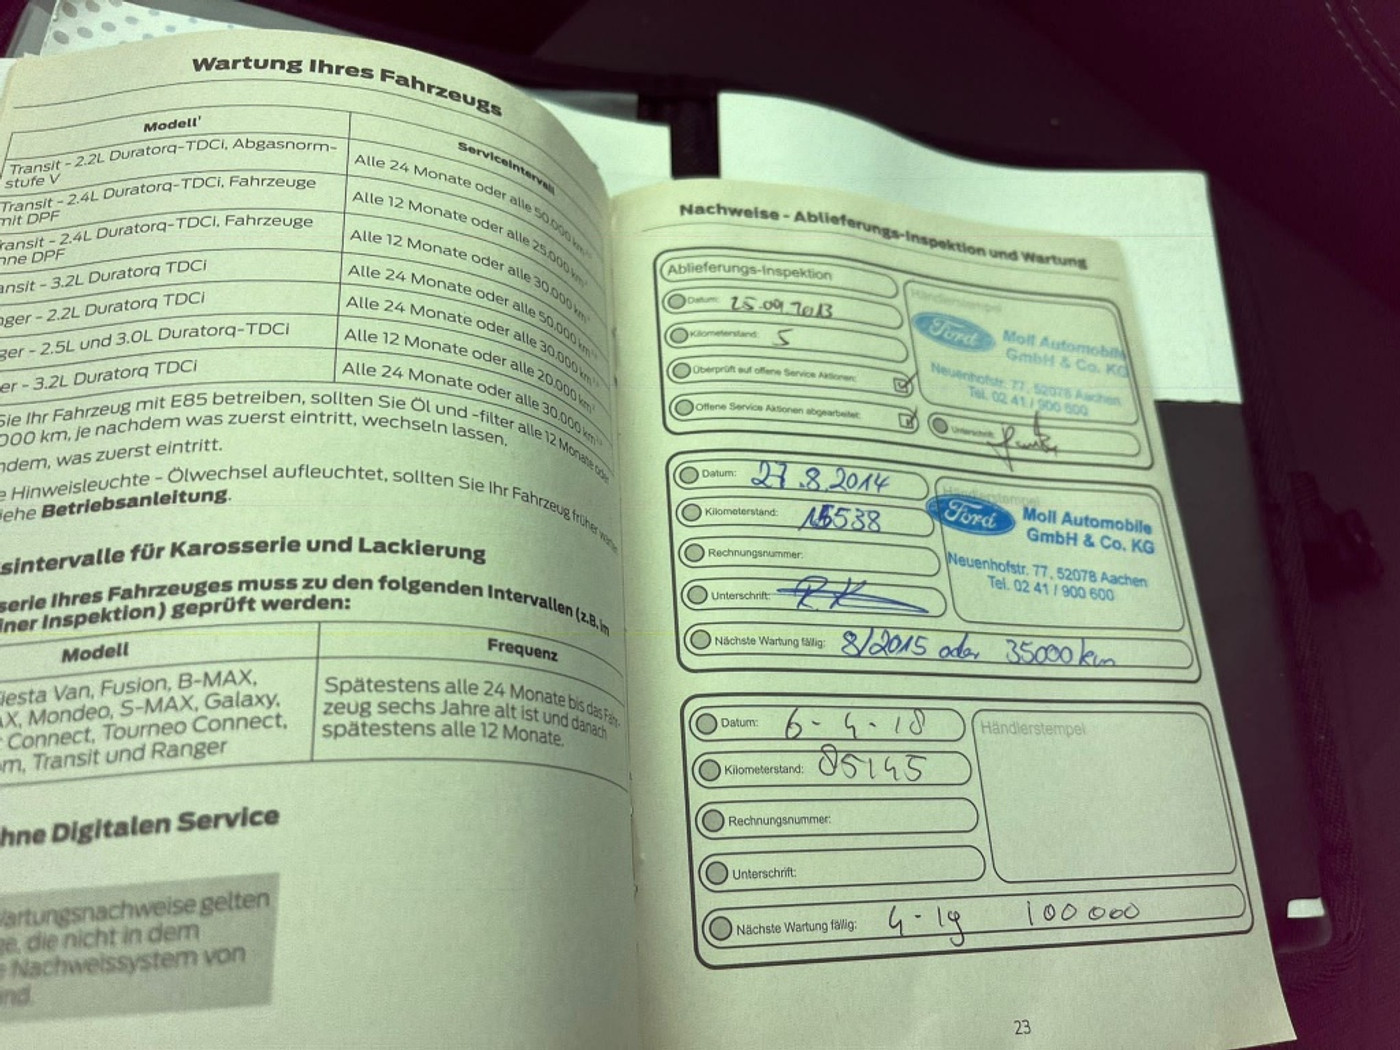 Wartung Ihres Fahrzeugs
Modell¹
Serviceintervall
Transit - 2.2L Duratorq-TDCi, Abgasnorm-
stufe V
Alle 24 Monate oder alle 50.000 km
Transit - 2.4L Duratorq-TDCi, Fahrzeuge
mit DPF
Alle 12 Monate oder alle 25.000 km
ransit - 2.4L Duratorq-TDCi, Fahrzeuge
hne DPF
Alle 12 Monate oder alle 30.000 km
ansit - 3.2L Duratorq TDCi
Alle 24 Monate oder alle 50.000 km
nger - 2.2L Duratorq TDCi
Alle 24 Monate oder alle 30.000 km
ger - 2.5L und 3.0L Duratorq-TDCi
Alle 12 Monate oder alle 20.000 km
er - 3.2L Duratorq TDCi
Alle 24 Monate oder alle 30.000 km
Sie Ihr Fahrzeug mit E85 betreiben, sollten Sie Öl und -filter alle 12 Monate oder
000 km, je nachdem was zuerst eintritt, wechseln lassen.
ndem, was zuerst eintritt.
e Hinweisleuchte - Ölwechsel aufleuchtet, sollten Sie Ihr Fahrzeug früher warten
iehe Betriebsanleitung.
sintervalle für Karosserie und Lackierung
serie Ihres Fahrzeuges muss zu den folgenden Intervallen (z.B. im
iner Inspektion) geprüft werden:
Modell
Frequenz
iesta Van, Fusion, B-MAX,
AX, Mondeo, S-MAX, Galaxy,
Connect, Tourneo Connect,
om, Transit und Ranger
Spätestens alle 24 Monate bis das Fahr-
zeug sechs Jahre alt ist und danach
spätestens alle 12 Monate.
hne Digitalen Service
Wartungsnachweise gelten
ge, die nicht in dem
e Nachweissystem von
ind.
Nachweise - Ablieferungs-Inspektion und Wartung
Ablieferungs-Inspektion
Datum: 25.09.2013
Kilometerstand: 5
Überprüft auf offene Service Aktionen:
Offene Service Aktionen abgearbeitet:
Händlerstempel
Ford
Moll Automobile
GmbH & Co. KG
Neuenhofstr. 77, 52078 Aachen
Tel. 02 41 / 900 600
Unterschrift:
Datum: 27.8.2014
Kilometerstand: 15538
Rechnungsnummer:
Unterschrift:
Nächste Wartung fällig: 8/2015 oder 35000 km
Händlerstempel
Ford
Moll Automobile
GmbH & Co. KG
Neuenhofstr. 77, 52078 Aachen
Tel. 02 41 / 900 600
Datum: 6-4-18
Kilometerstand: 85145
Rechnungsnummer:
Unterschrift:
Nächste Wartung fällig: 4-19 100 000
Händlerstempel
23